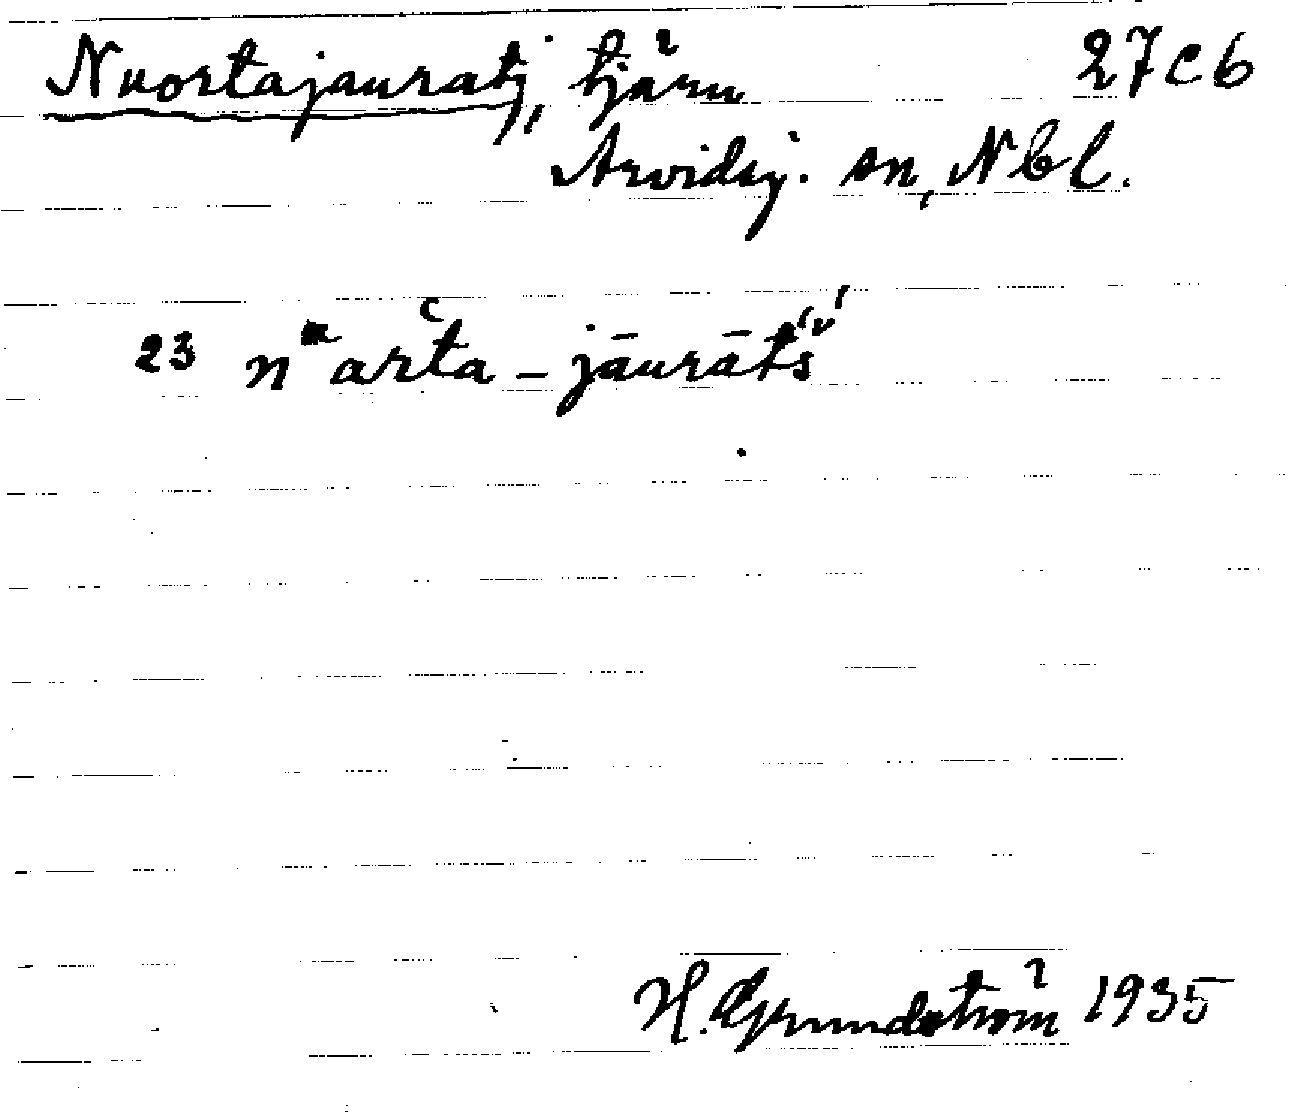 Nuortajauratj, tjärn 27 C b
Arvidsj. sn, Nbl.
23 nᵘarʽta - jāurāt́s̀́
H. Grundström 1935